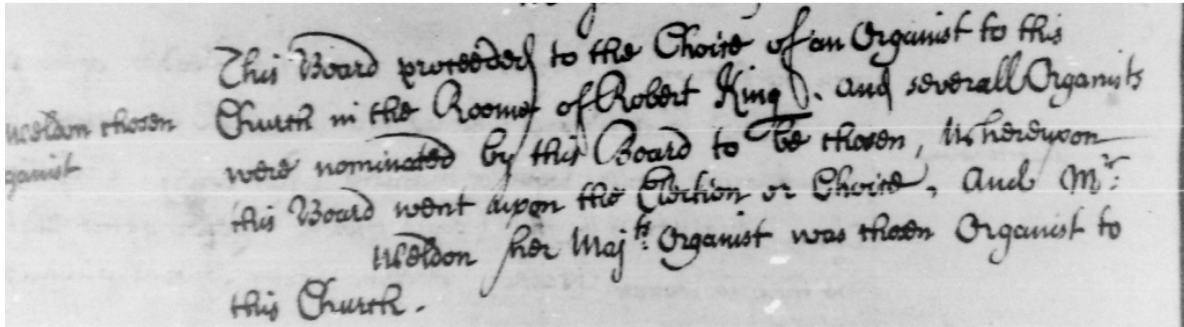 This Board proceeded to the Choice of an Organist to this
Church in the Roome of Robert King. And severall Organists
Weldon chosen
were nominated by this Board to be chosen, Whereupon
ganist
this Board went upon the Election or Choice, And Mr:
Weldon her Majts: Organist was chosen Organist to
this Church.